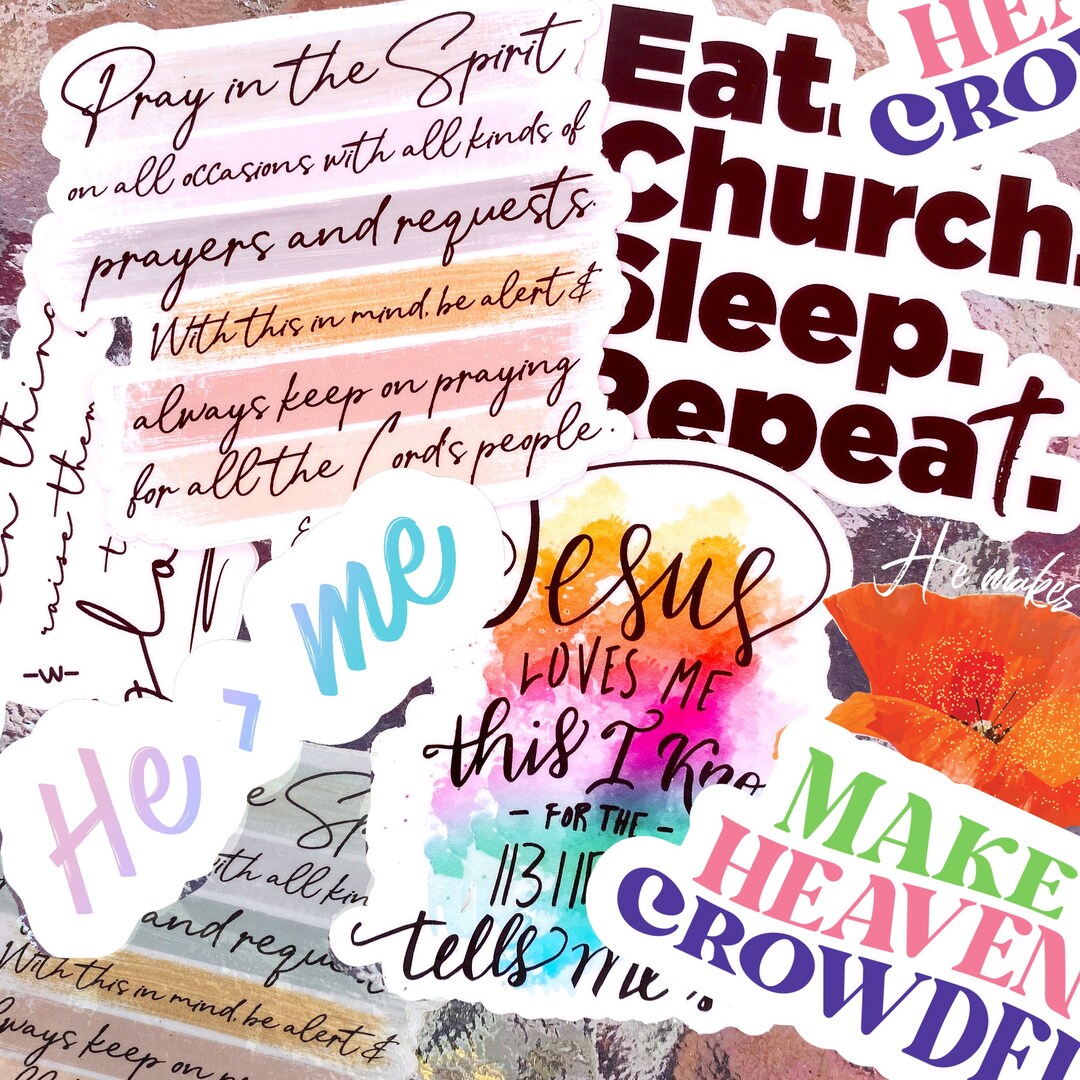 Pray in the Spirit
on all occasions with all kinds of
prayers and requests.
With this in mind, be alert &
always keep on praying
for all the Lord's people.
Eat.
Church.
Sleep.
Repeat.
HEA
CRO
raise them
He > me
Jesus
LOVES ME
this I Kno
- FOR THE -
BIB
tells me.
He makes
MAKE
HEAVEN
CROWDE
e Sp
ith all kin
and requ
With this in mind, be alert &
lways keep on pr